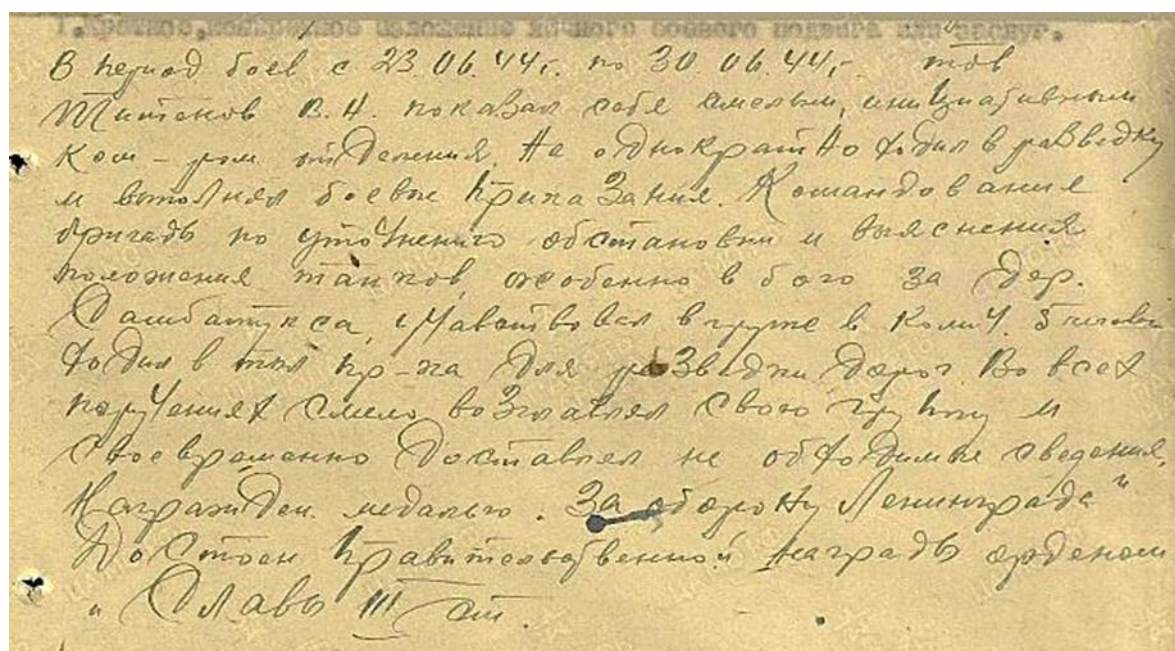 I. Краткое, конкретное изложение личного боевого подвига или заслуг.
В период боев с 23.06.44г. по 30.06.44г. тов
Титенков В.Н. показал себя смелым, инициативным
ком-ром отделения. Не однократно ходил в разведку
и выполнял боевые приказания. Командования
бригады по уточнению обстановки и выяснения
положения танков, особенно в бою за дер.
Самбатукса, участвовал в групе в колич. 5 человек
ходил в тыл пр-ка для разведки дорог. Во всех
поручениях смело возглавлял свою групу и
своевременно доставлял не обходимые сведения.
Награжден медалью "За оборону Ленинграда"
Достоен Правительственной награды орденом
"Славы III ст.